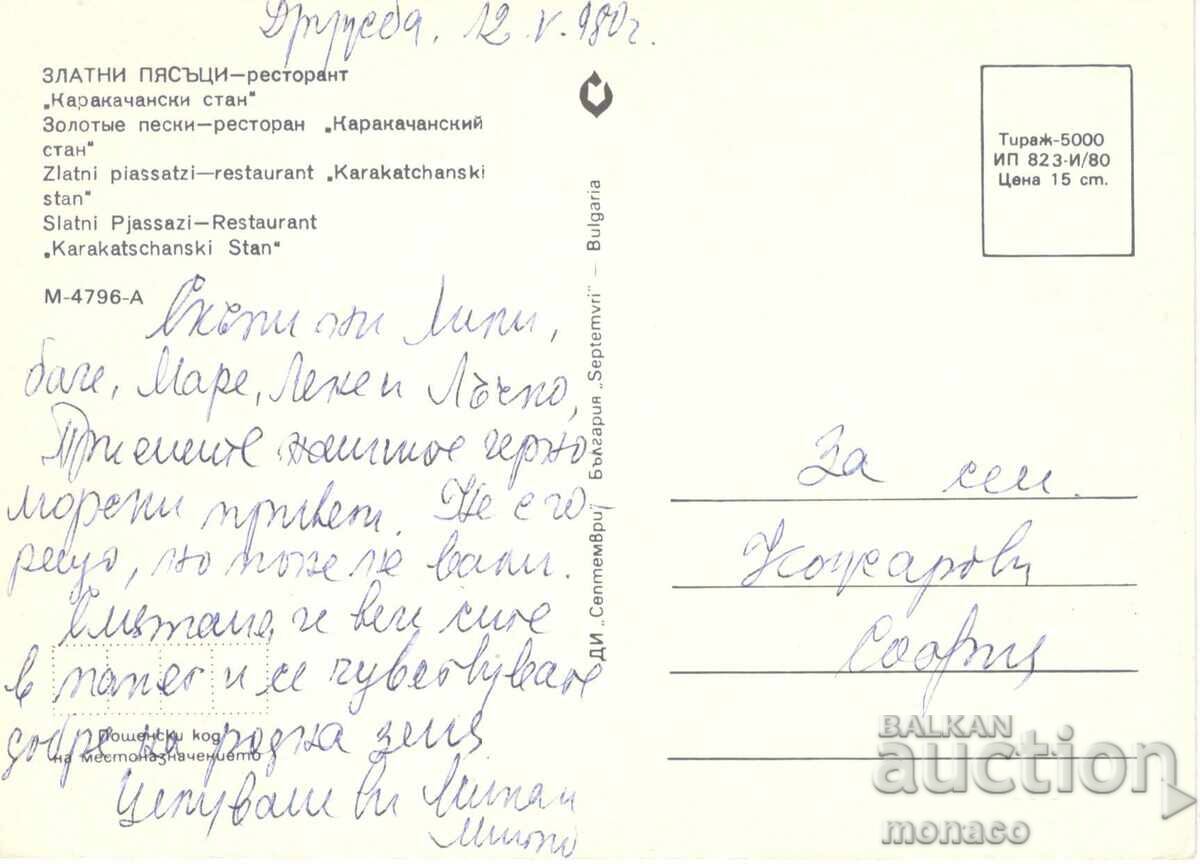 Дружба, 12 V. 980 г.
ЗЛАТНИ ПЯСЪЦИ—ресторант
„Каракачански стан"
Золотые пески—ресторан „Каракачанский
стан"
Zlatni piassatzi—restaurant „Karakatchanski
stan"
Slatni Pjassazi—Restaurant
„Karakatschanski Stan"
М-4796-А
Скъпи ни Лили,
баче, Маре, Лене и Лъчко,
Приемете нашите черно
морски привет. Не е го-
рещо, но поне не вали.
Смятаме, че вече сите
в и се чувствувате
добре на родна земя
Целуваме ви
Пощенски код
на местоназначението
ДИ „Септември" България „Septemvri" — Bulgaria
Тираж-5000
ИП 823-И/80
Цена 15 ст.
За сем.
Кожарови
София
BALKAN
auction
monaco